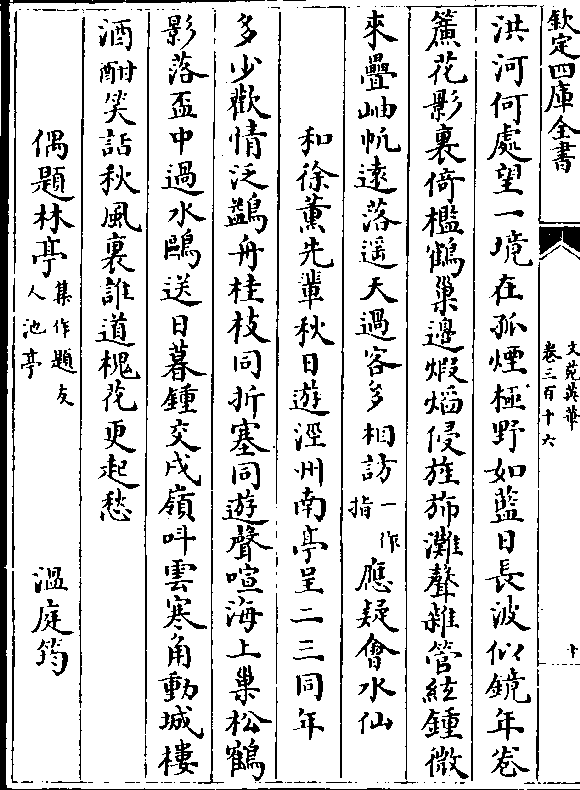 欽定四庫全書
文苑英華
卷三百十六
十
洪河何處望一境在孤煙極野如藍日長波似鏡年卷
簾花影裏倚檻鶴巢邊煆熖侵旌斾灘聲雜管絃鍾微
來疊岫帆遠落遥天過客多相訪一作指應疑會水仙
和徐薰先輩秋日遊涇州南亭呈二三同年
多少歡情泛鷁舟桂枝同折塞同遊聲喧海上巢松鶴
影落盃中過水鷗送日暮鍾交戍嶺呌雲寒角動城樓
酒酣笑詁秋風裏誰道槐花更起愁
偶題林亭集作題友人池亭 溫庭筠